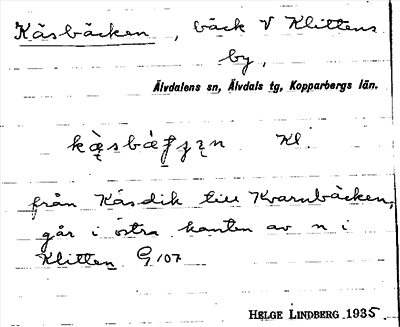 Kåsbäcken, bäck V Klittens
by,
Älvdalens sn, Älvdals tg, Kopparbergs län.
Kl.
från Kåsdik till Kvarnbäcken,
går i östra kanten av n i
Klitten G,107
HELGE LINDBERG 1935